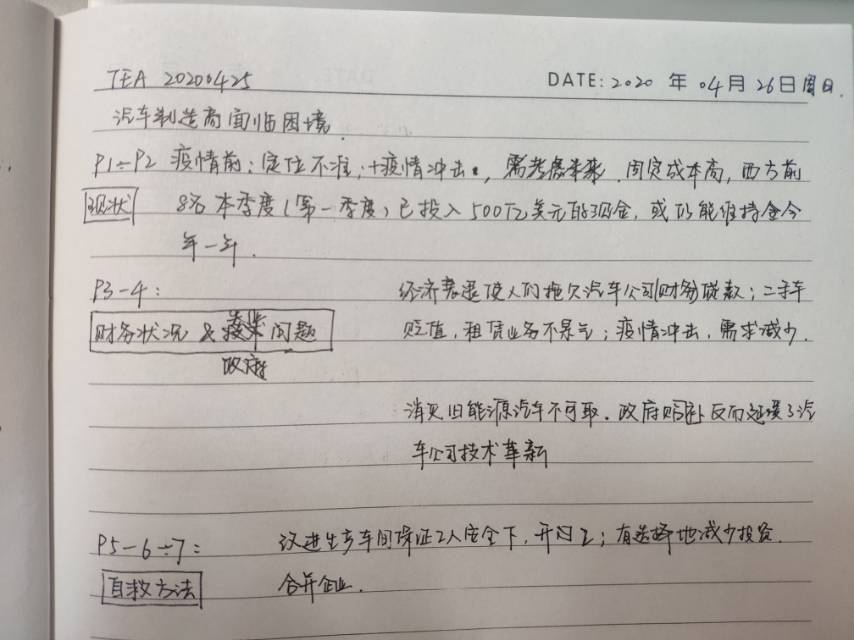 TEA 20200425
DATE: 2020 年 04月 26日周日.
汽车制造商面临困境.
P1÷P2 疫情前:定位不准,+疫情冲击, 需考虑未来. 固定成本高, 西方前
现状 8名 本季度(第一季度)已投入500亿美元的现金, 或仅能维持今
年一年.
P3-4: 经济衰退使人们拖欠汽车公司财务贷款;二手车
财务状况 & 问题 贬值, 租赁业务不景气;疫情冲击, 需求减少.
政府
消灭旧能源汽车不可取. 政府贴补反而延缓了汽
车公司技术革新
P5-6÷7: 改进生产车间保证工人安全下, 开工;有选择地减少投资.
自救方法 合并企业.